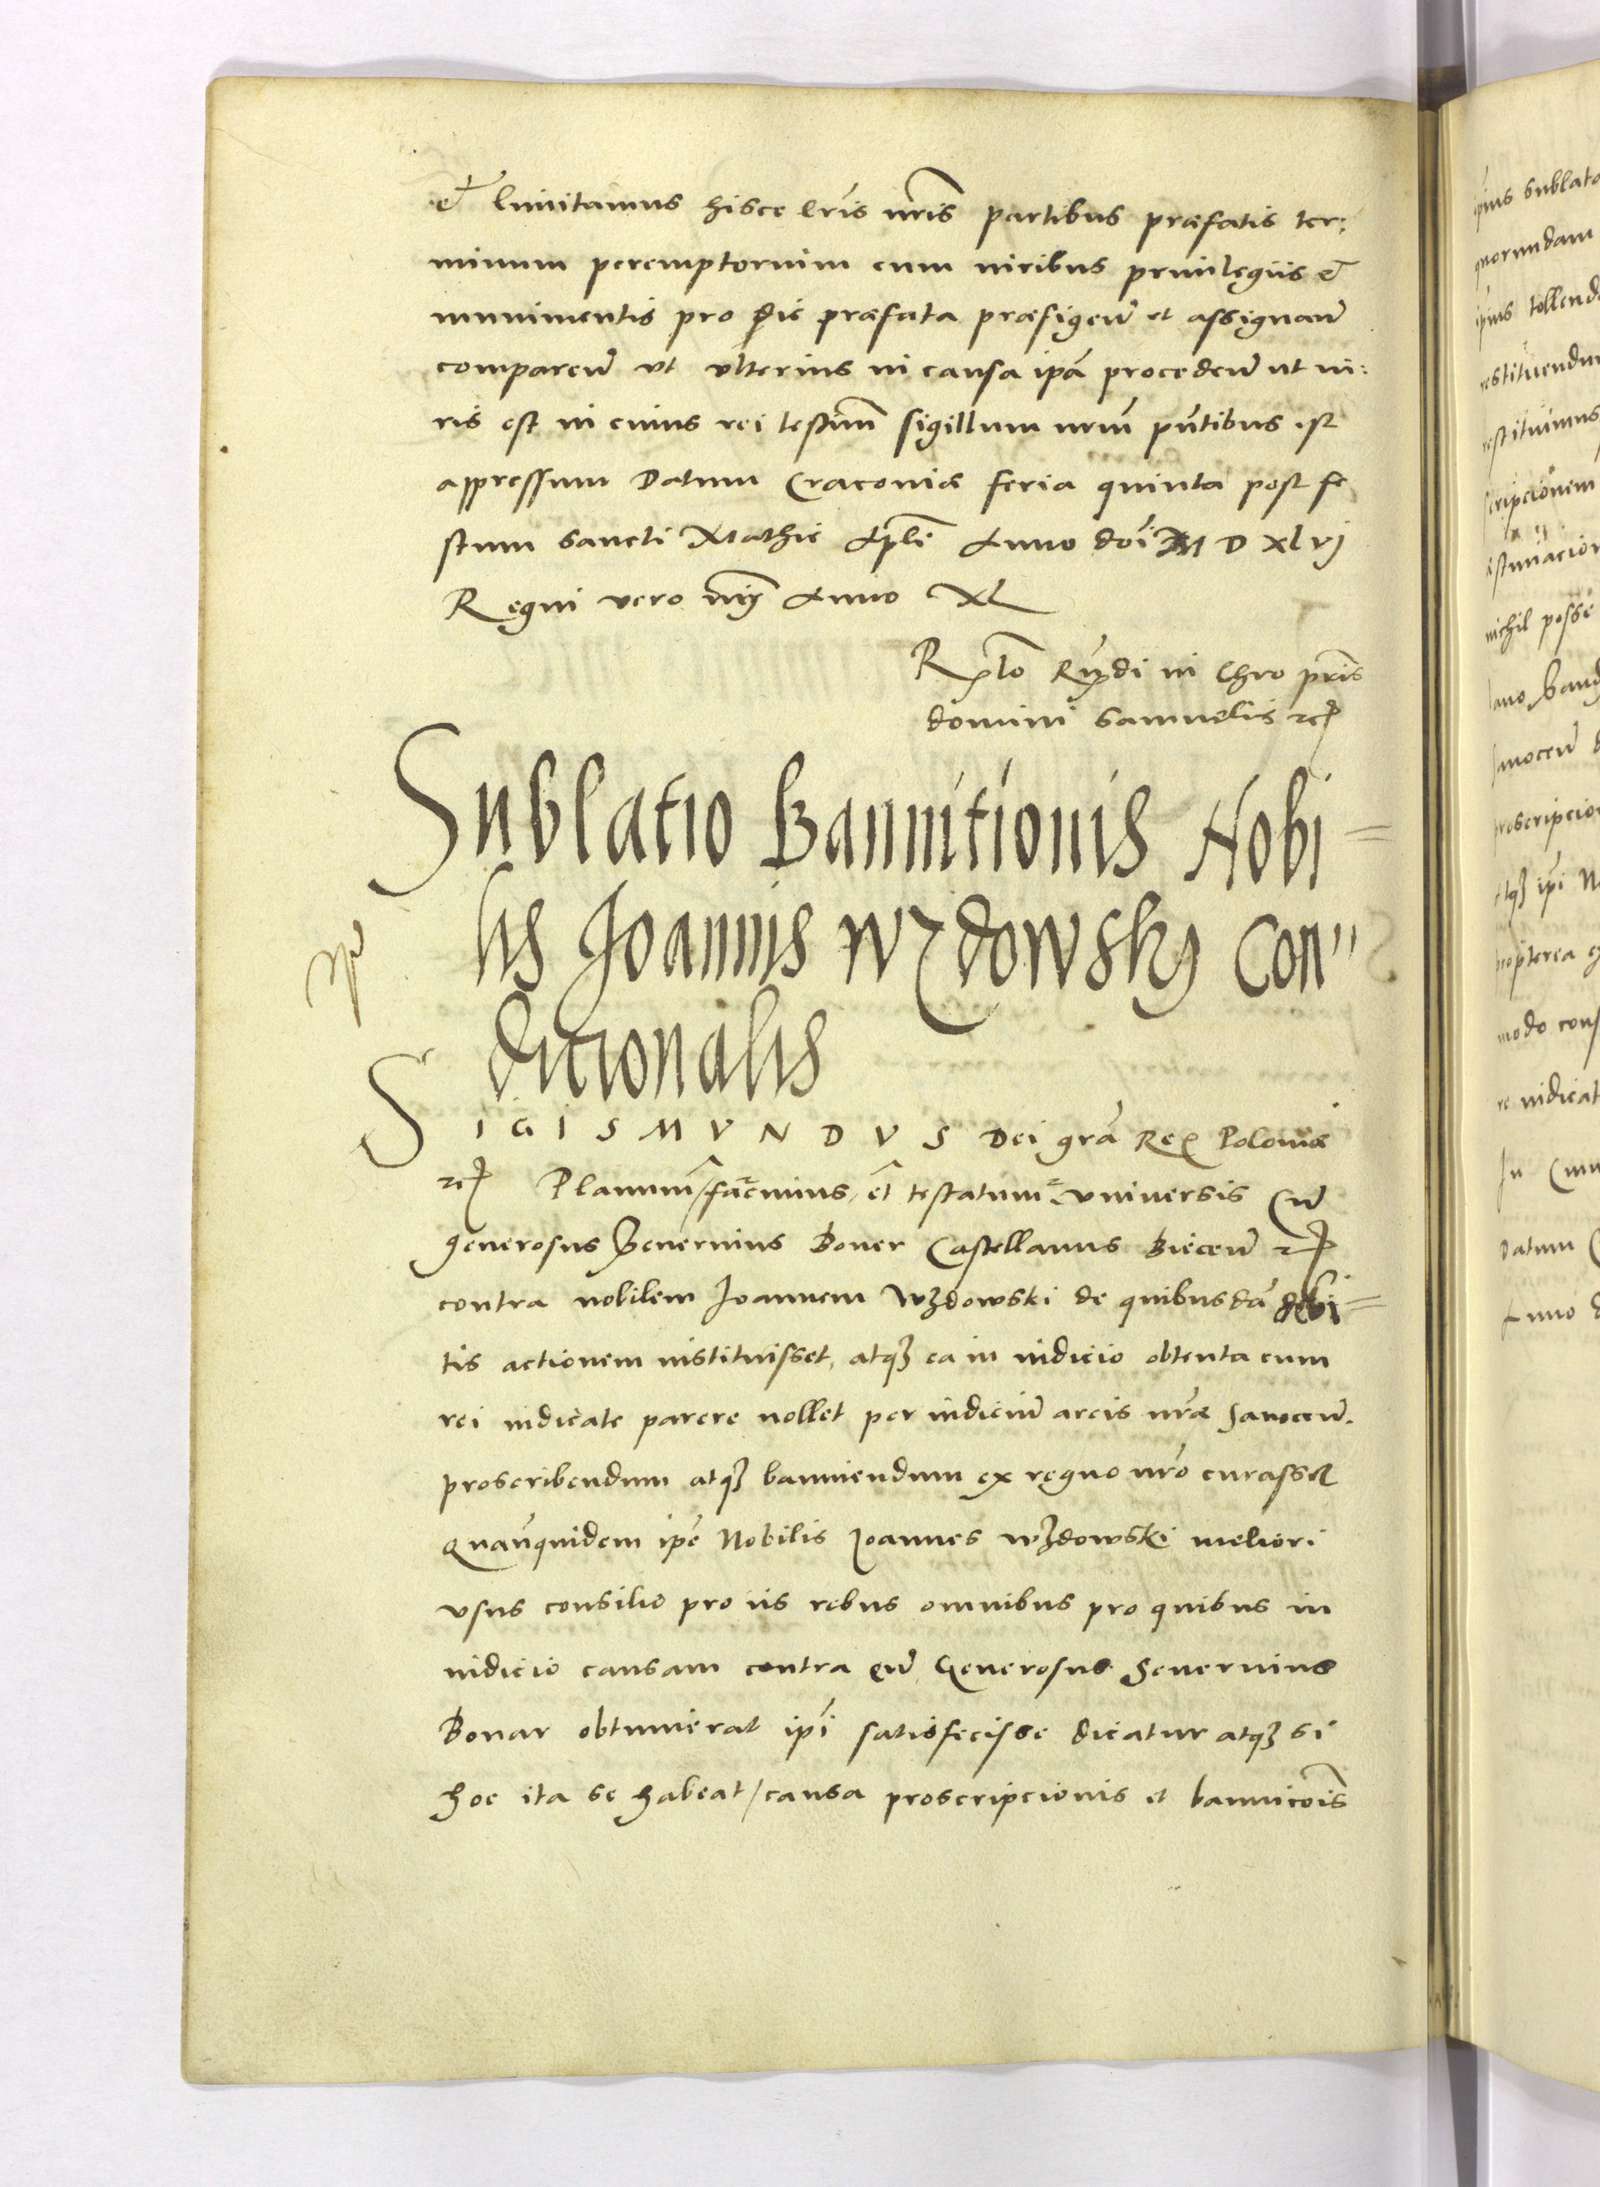 et limitamus hisce lr̃is nr̃is partibus præfatis ter:
minum peremptorium cum iuribus priuilegiis et
munimentis pro die præfata præfigeñ et assignañ
compareñ vt vlterius in causa ipã procedeñ ut iu:
ris est in cuius rei testim̃ sigillum nrũm pñtibus est
appressum Datum Cracoviæ feria quinta post fe
stum sancti Mathie Apl̃i Anno doĩ M D xlvj
Regni vero nrĩ Anno XL
Rel̃o Rn̄di in Chro pr̃is
domini Samuelis etc
Sublatio Bannitionis Nobi=
lis Joannis Wzdowskj Con"
ditionalis
SIGISMVNDVS Dei grã Rex Poloniæ
etc Planum facimus et testatum vniversis Cũ
generosus Seuerinus Boner Castellanus Biecen̄ etc
contra nobilem Joannem Wzdowski de quibusdã debi=
tis actionem instituisset, atqз ea in iudicio obtenta cum
rei iudicate parere nollet per iudiciũ arcis nr̃æ Sanoceñ.
proscribendum atqз banniendum ex regno nr̃o curasset
Quañquidem ipẽ Nobilis Joannes wzdowski meliori
vsus consilio pro iis rebus omnibus pro quibus in
iudicio causam contra eũ Generosus Seuerinus
Bonar obtinuerat ipĩ satisfecisse dicatur atqз si
hoc ita se habeat / causa proscripcionis et bannicõis